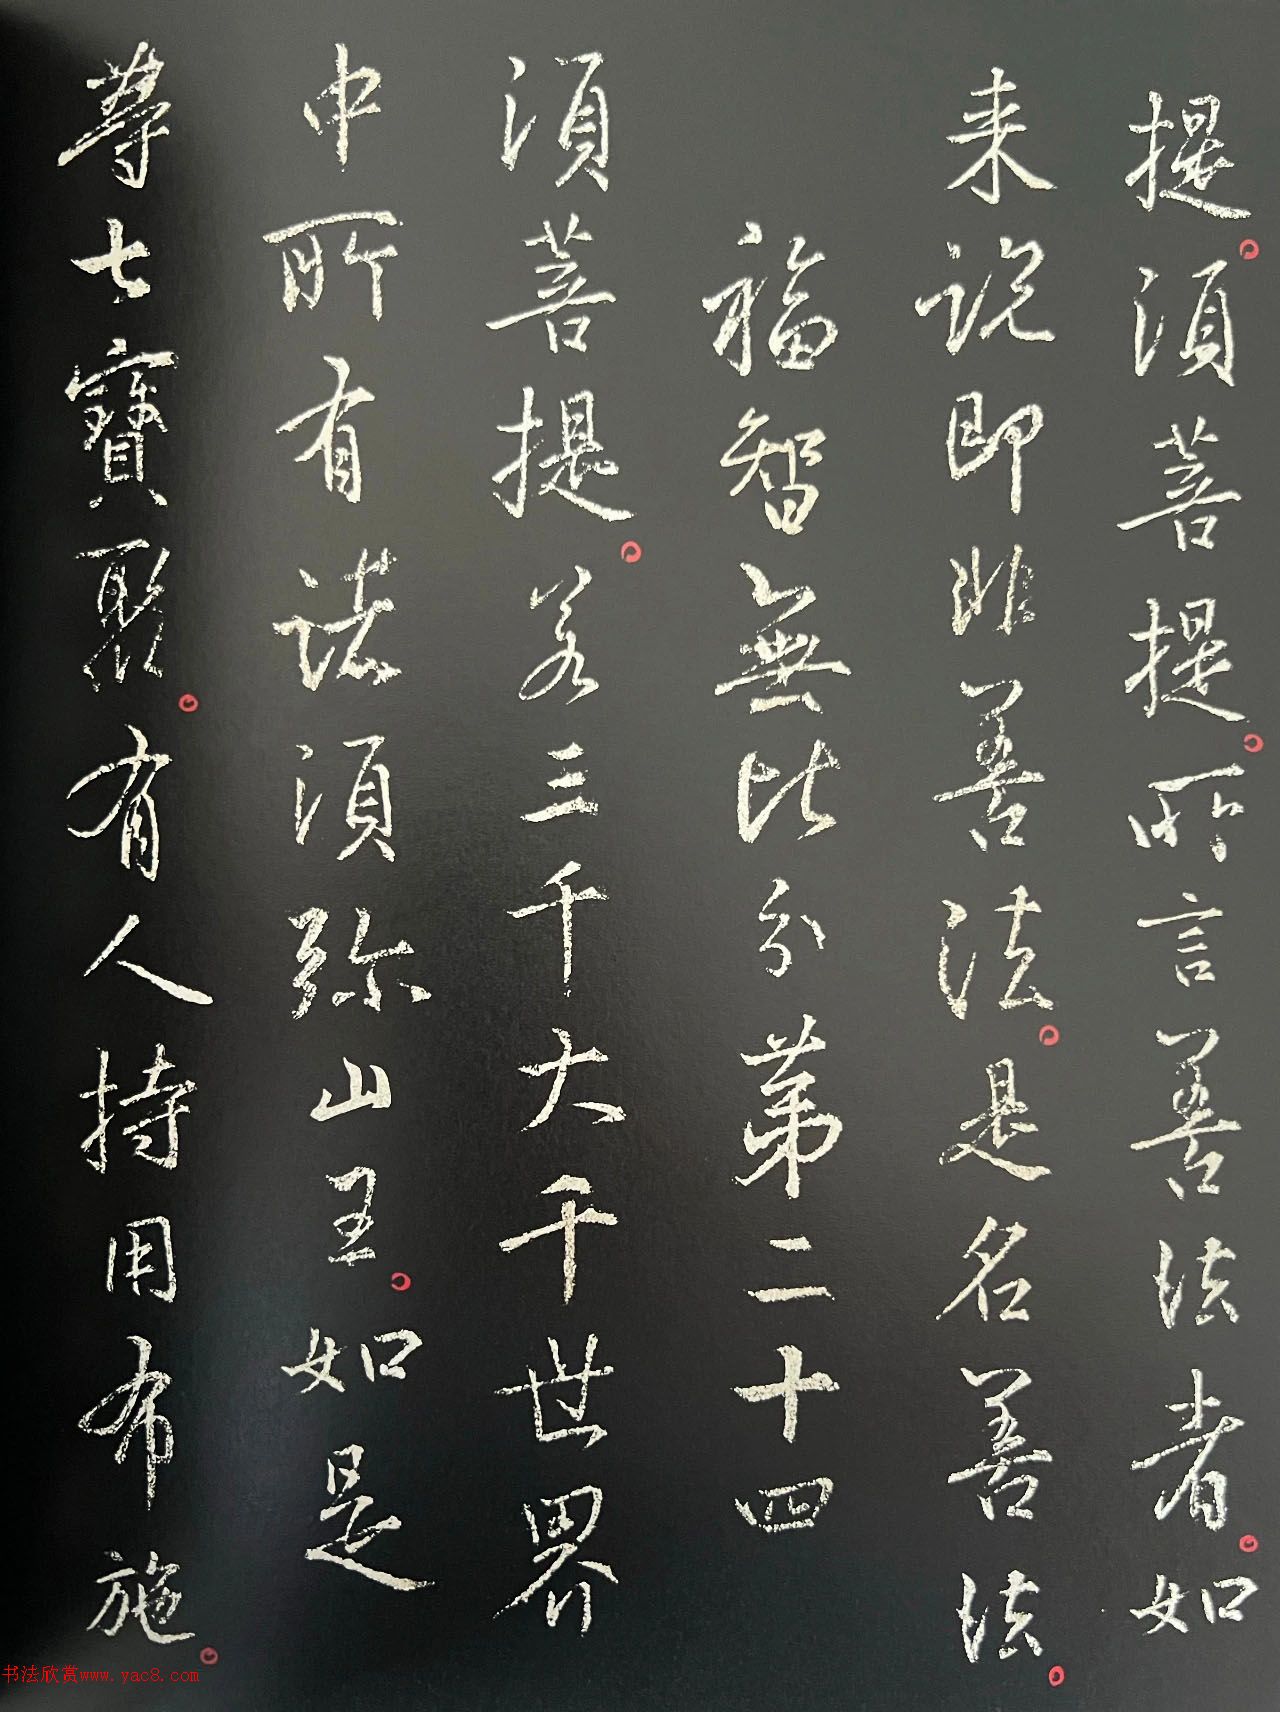 提。須菩提。所言善法者。如
来説即非善法。是名善法。
福智無比分第二十四
須菩提。若三千大千世界
中所有諸須弥山王。如是
等七寶聚。有人持用布施。
书法欣赏www.yac8.com